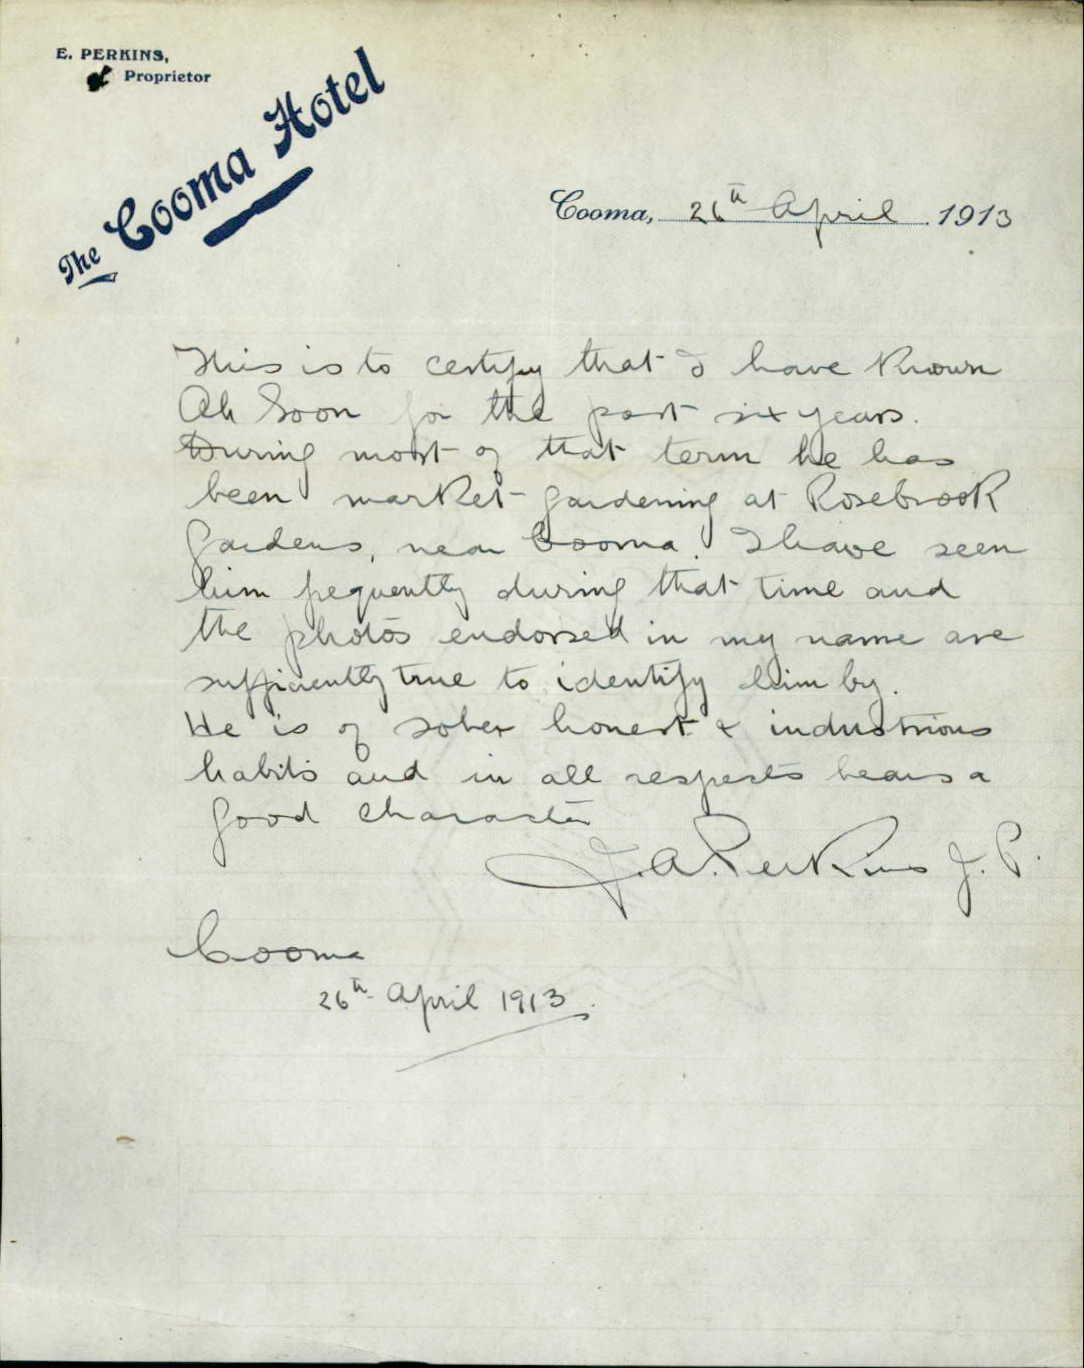 E. PERKINS,
Proprietor
The Cooma Hotel
Cooma, 26th April 1913
This is to certify that I have known
Ah Soon for the past six years.
During most of that term he has
been market gardening at Rosebrook
Gardens, near Cooma. I have seen
him frequently during that time and
the photos endorsed in my name are
sufficiently true to identify him by.
He is of sober honest & industrious
habits and in all respects bears a
good character
J. A. Perkins J. P.
Cooma
26th April 1913.